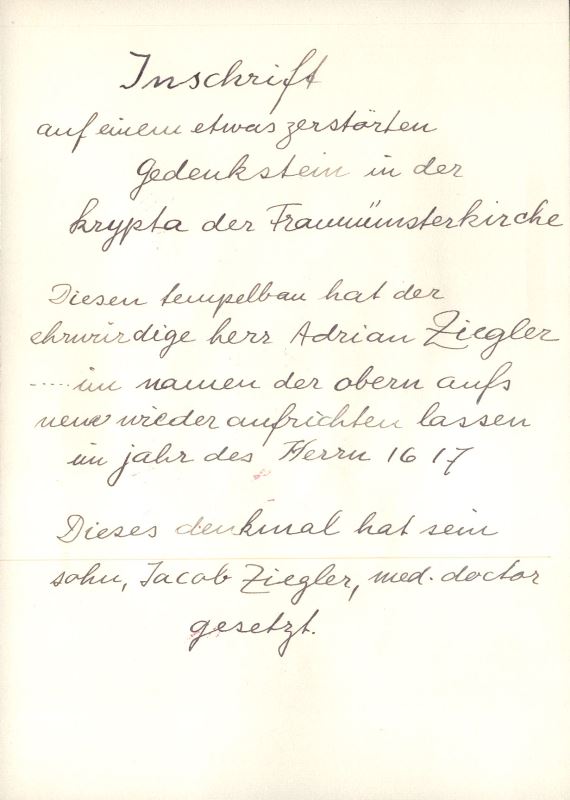 Inschrift
auf einem etwas zerstörten
Gedenkstein in der
krypta der Fraumünsterkirche
Diesen tempelbau hat der
ehrwürdige herr Adrian Ziegler
..... im namen der obern aufs
neue wieder aufrichten lassen
im jahr des Herrn 1617
Dieses denkmal hat sein
sohn, Jacob Ziegler, med. doctor
gesetzt.